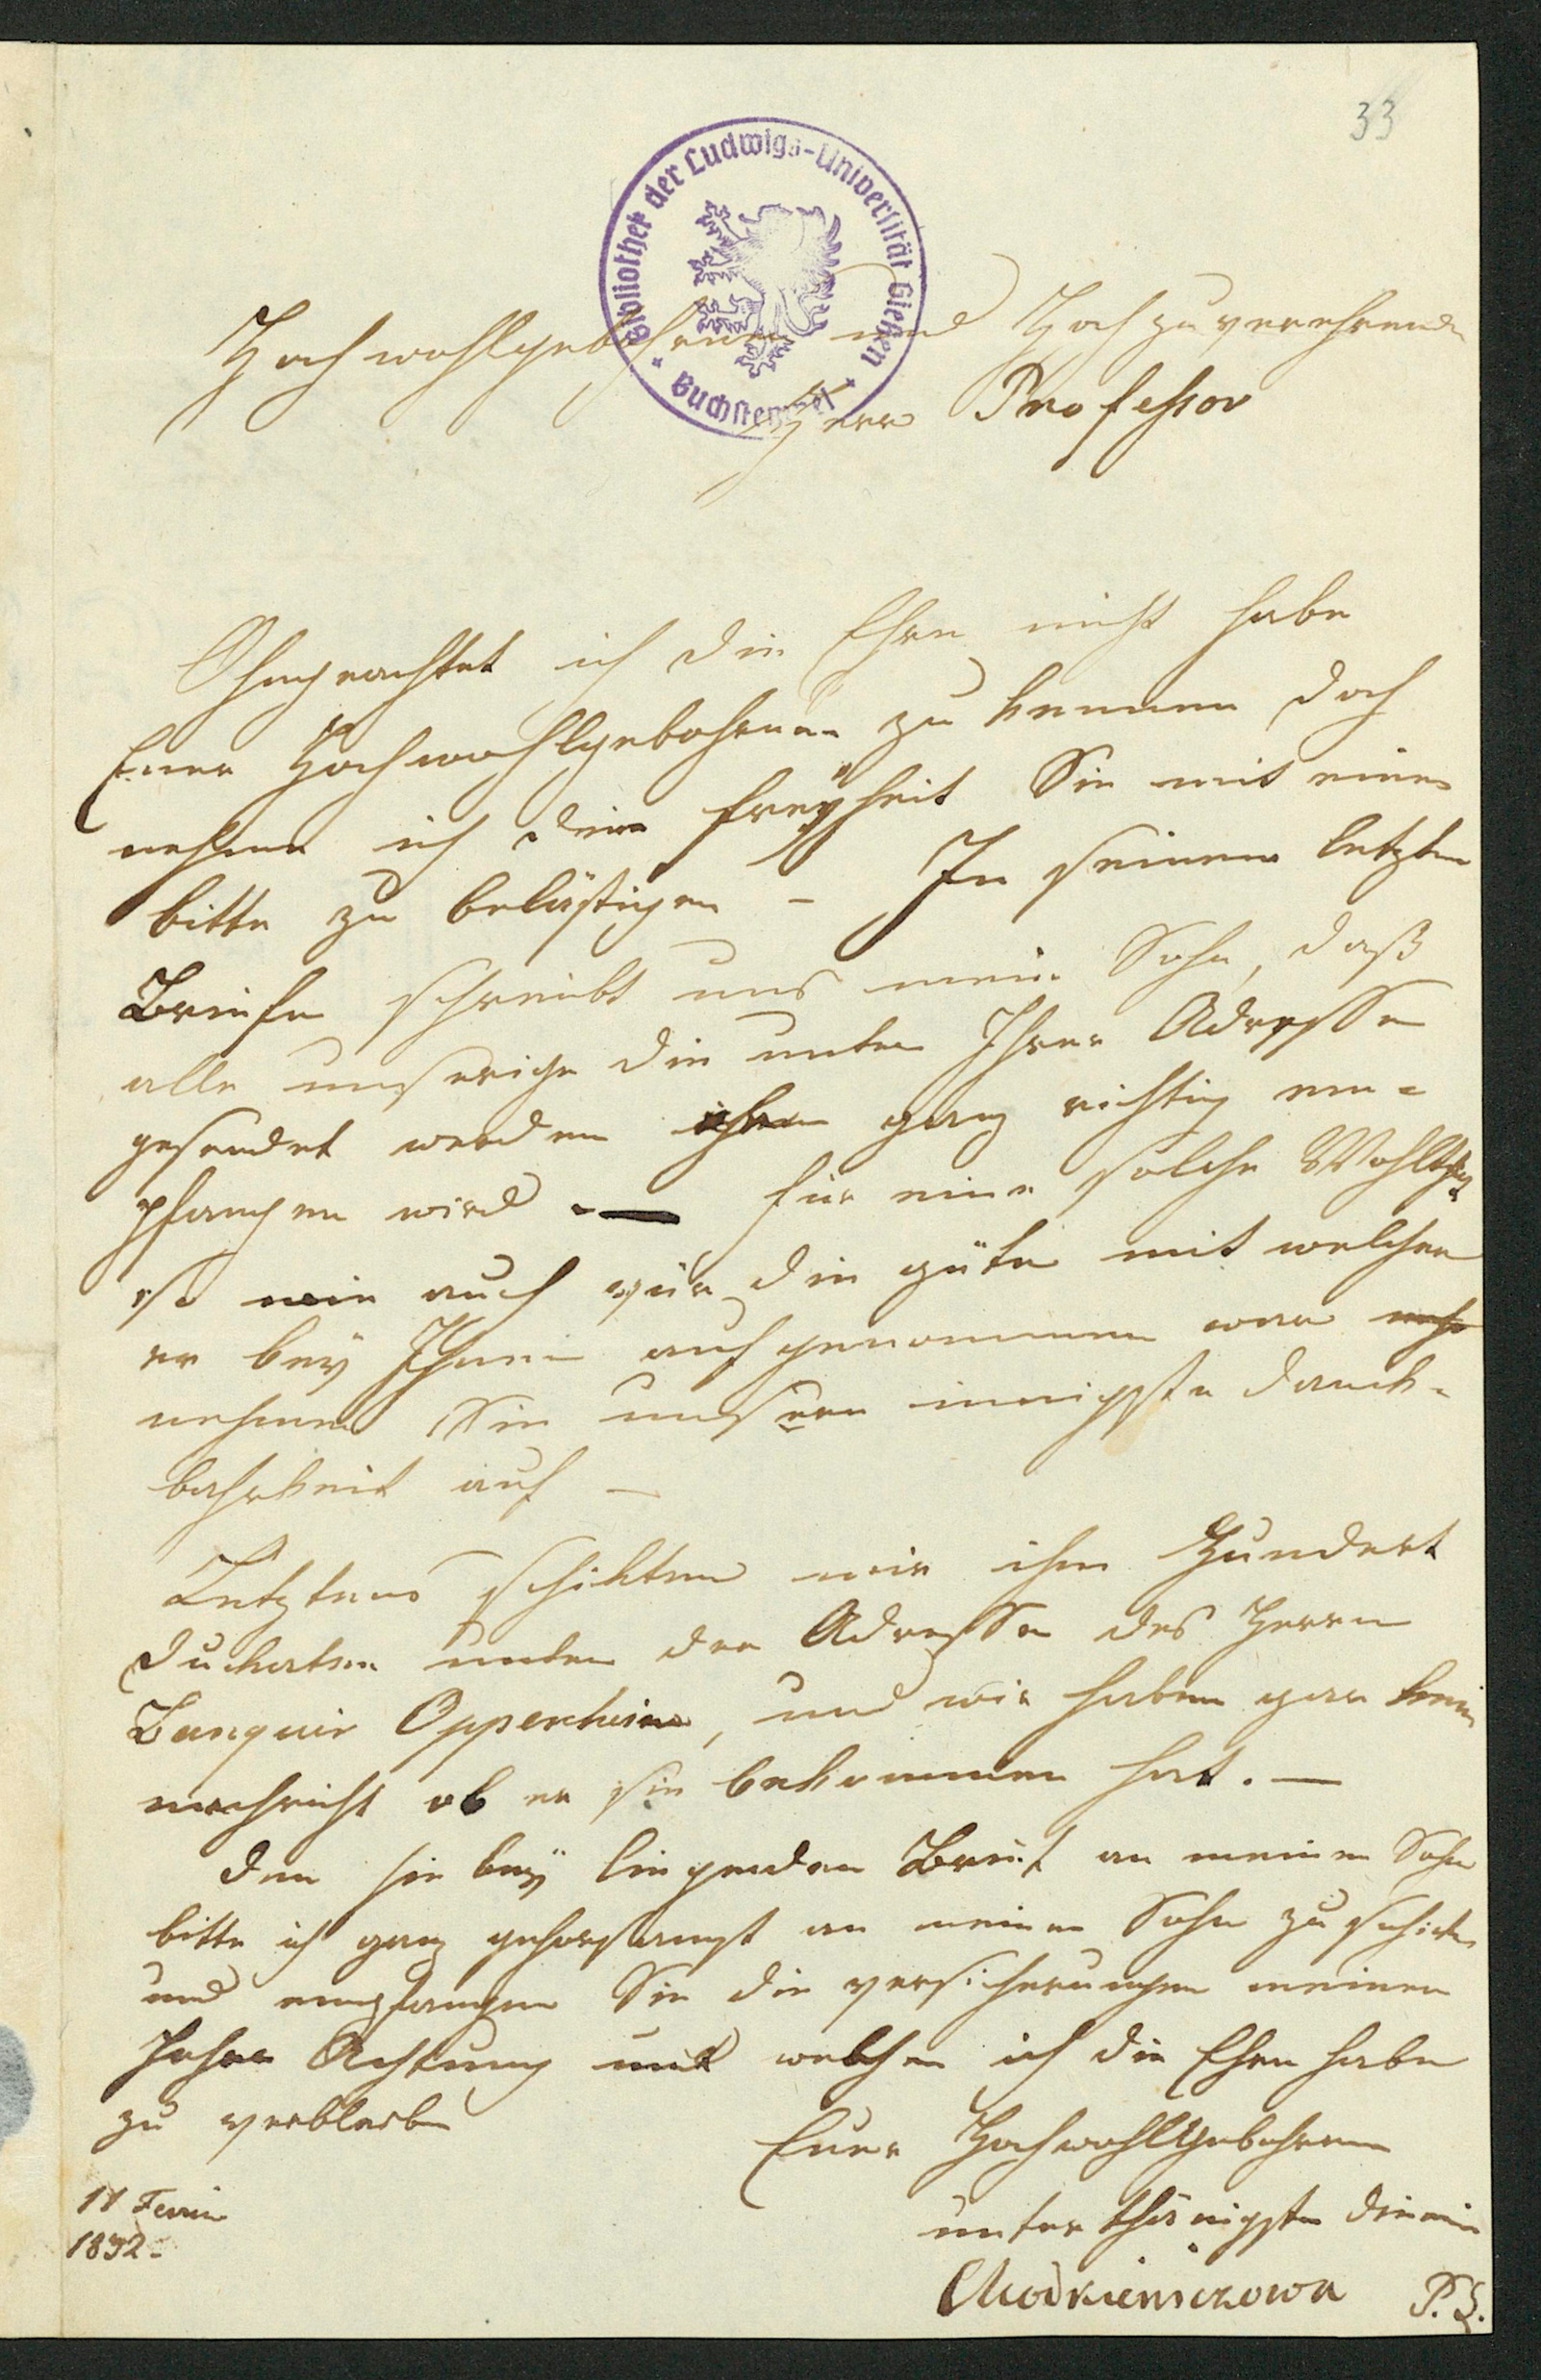 33
Bibliothek der Ludwigs-Universität Gießen
Buchstempel
Hochwohlgebohrener und Hochzuverehrender
Herr Professor
Ohngeachtet ich die Ehre nicht habe
Euer Hochwohlgebohrenen zu kennen doch
nehme ich die freÿheit Sie mit einer
bitte zu belästigen – In seinem letzten
Briefe schreibt uns mein Sohn, daß
alle unserige die unter Ihrer Adresse
gesendet werden ganz richtig em-
pfangen wird. — für eine solche
so wie auch für die güte mit welcher
er beÿ Ihnen aufgenommen war
nehmen Sie unsere innigste danck-
bahrkeit auf –
Letztens schikten wir ihm Hundert
Dukaten unter der Adresse des Herrn
Banquir Oppenheim, und wir haben gar kein
nachricht ob er sie bekommen hat. —
Den hie beÿ liegenden Brief an meinen Sohn
bitte ich ganz gehorsamst an meinen Sohn zu schicken
und empfangen Sie die versicherungen meiner
hohen Achtung mit welcher ich die Ehre habe
zu verbleiben
Euer Hochwohlgebohrenen
unterthänigste dienerin
11
1832-
P.S.